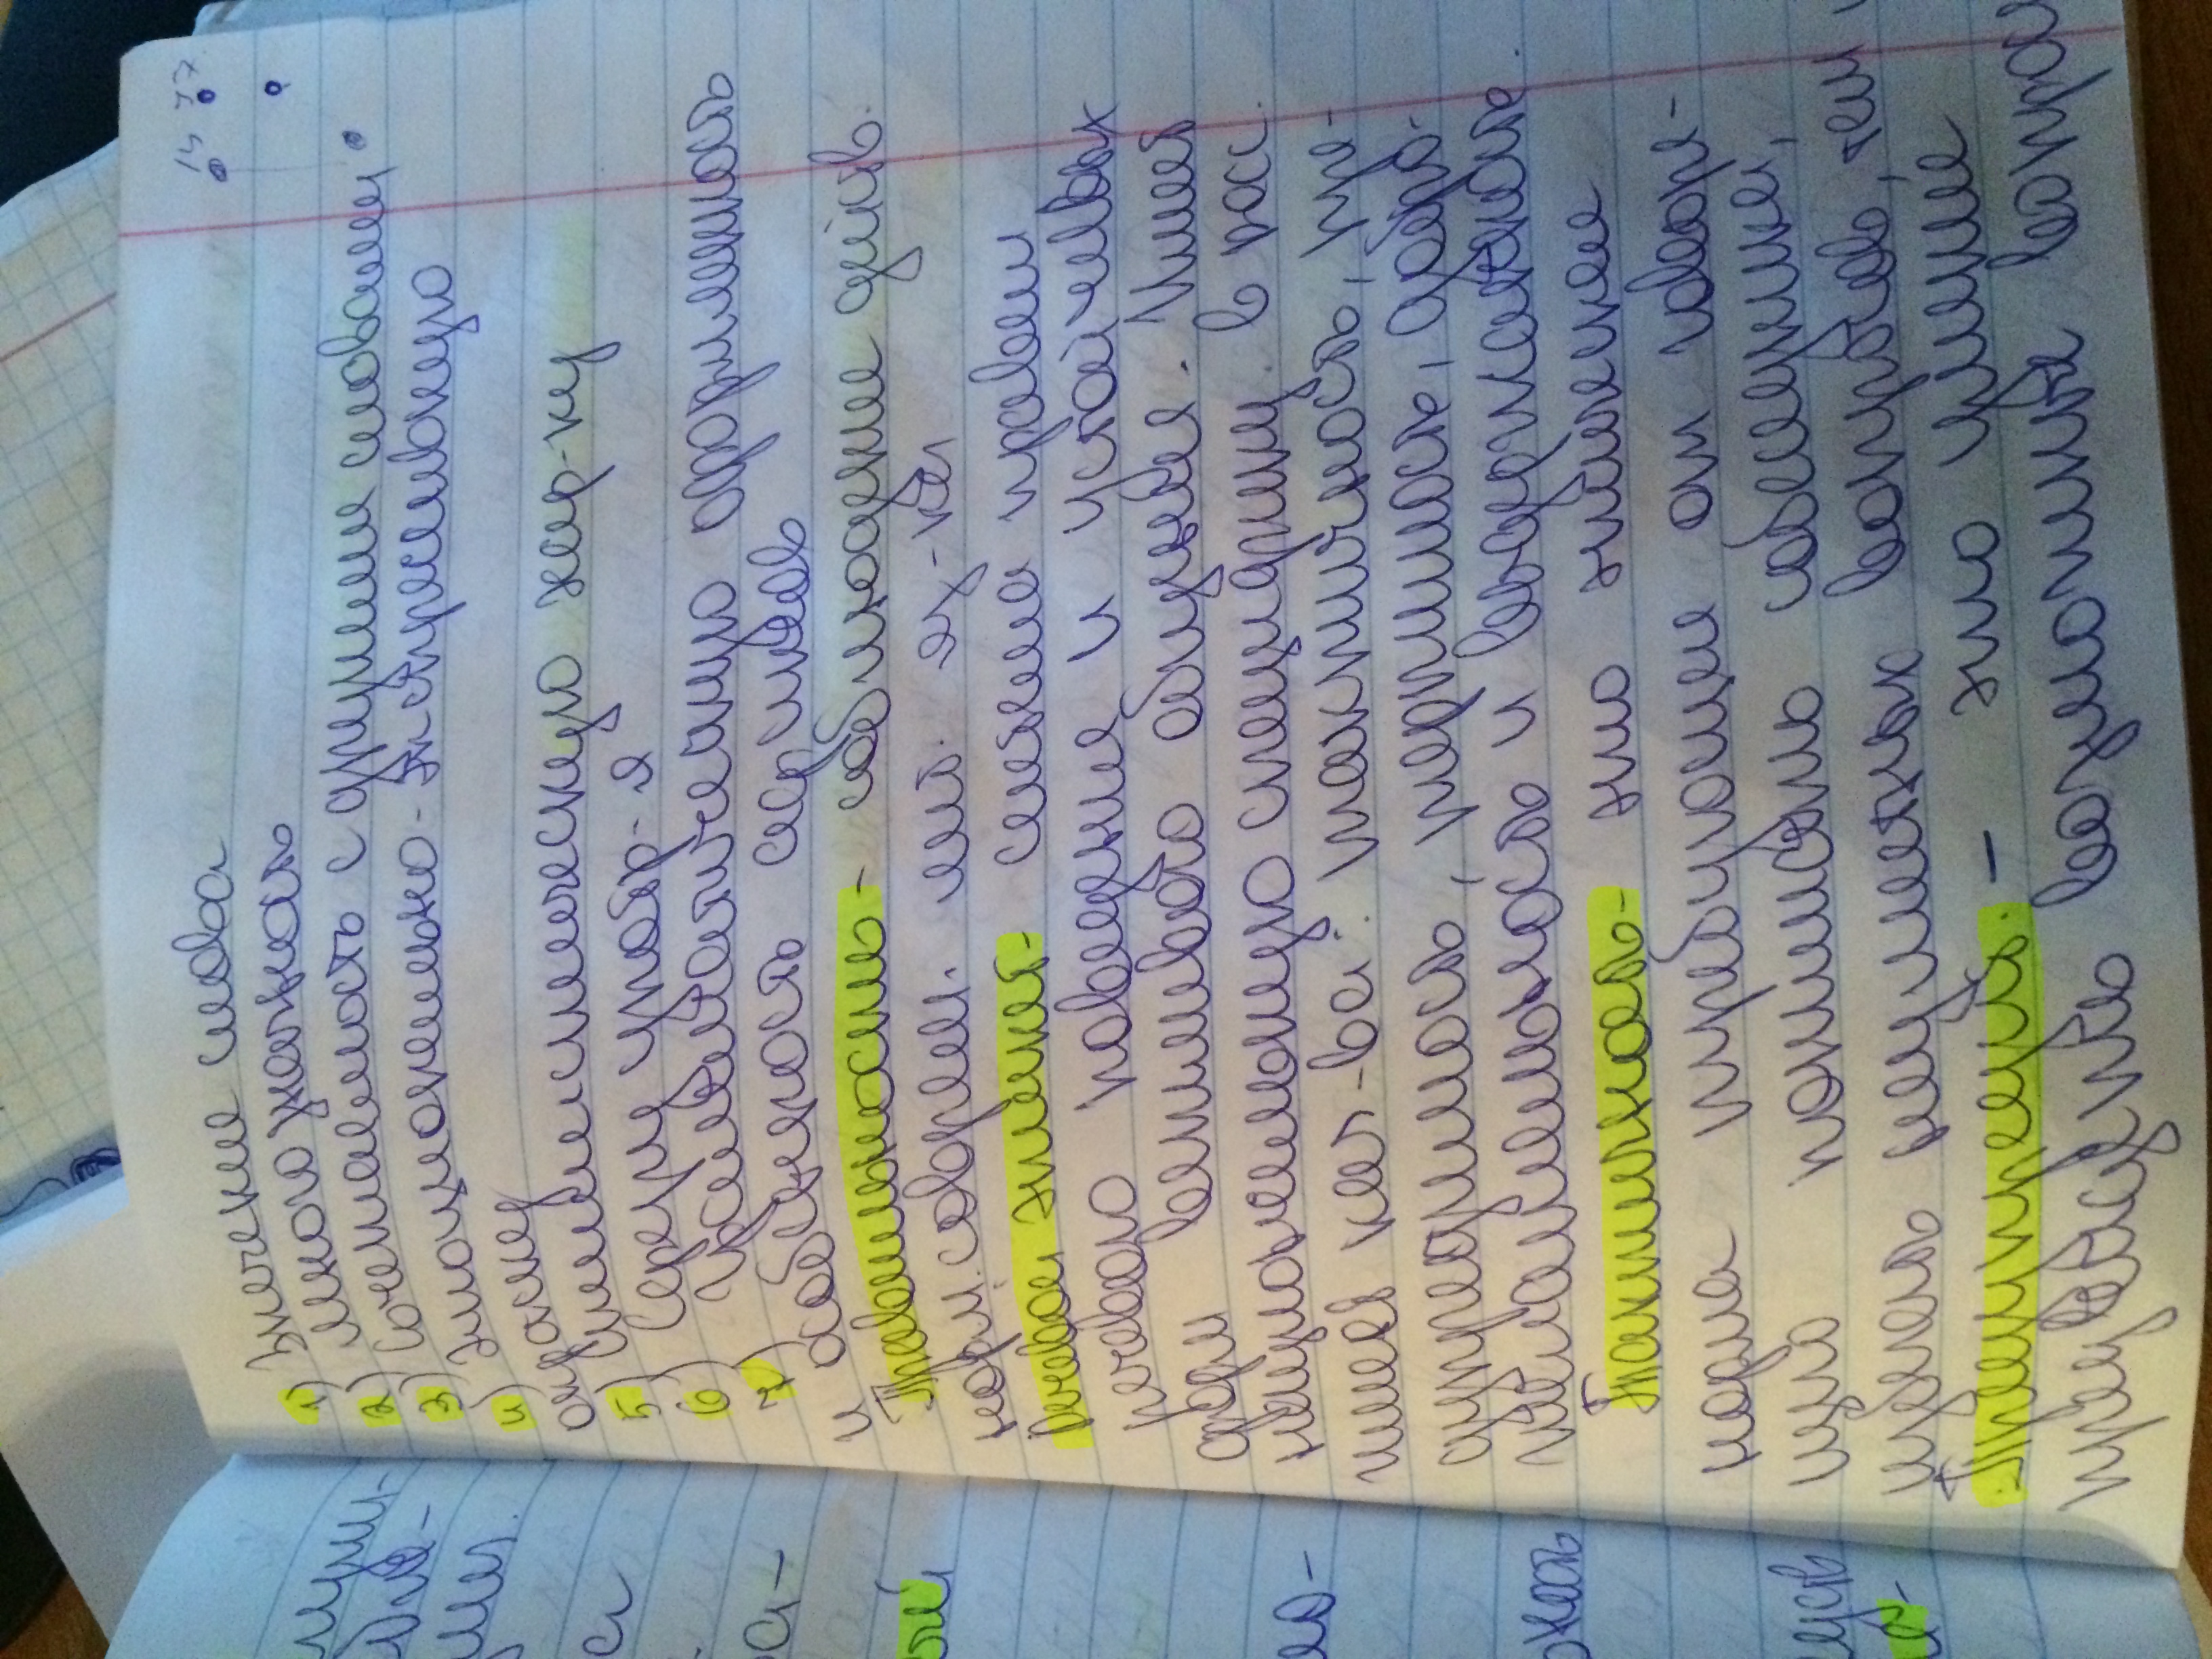 1) Значение слова
2) многозначность
3) Сочетаемость с другими словами
4) Эмоционально-экспрессивную
окраску
5) Стилистическую хар-ку
6) Сферу употр-я
7) Грамматическую оформленность
и особенность суффиксов
Правильность - соблюдение действ.
норм. соврем. лит. яз-ка
Речевой этикет - система правил
речевого поведения и устойчивых
форм вежливого общения. Имеет
национальную специфику. В росс.
кач-ва: тактичность, пре-
дупредимость, терпимость, добро-
желательность и выдержанность.
Тактичность - это этическая
норма требующая от говоря-
щего понимать собеседника,
избегать неуместных вопросов, тем
Предупредит. - это умение
предвидеть возможные
14 17